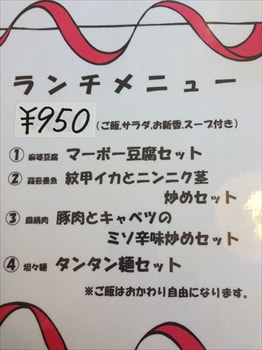 ランチメニュー
¥950 (ご飯,サラダ,お新香,スープ付き)
① 麻婆豆腐 マーボー豆腐セット
② 蒜苔墨魚 紋甲イカとニンニク茎
炒めセット
③ 回鍋肉 豚肉とキャベツの
ミソ辛味炒めセット
④ 坦々麺 タンタン麺セット
※ご飯はおかわり自由になります。